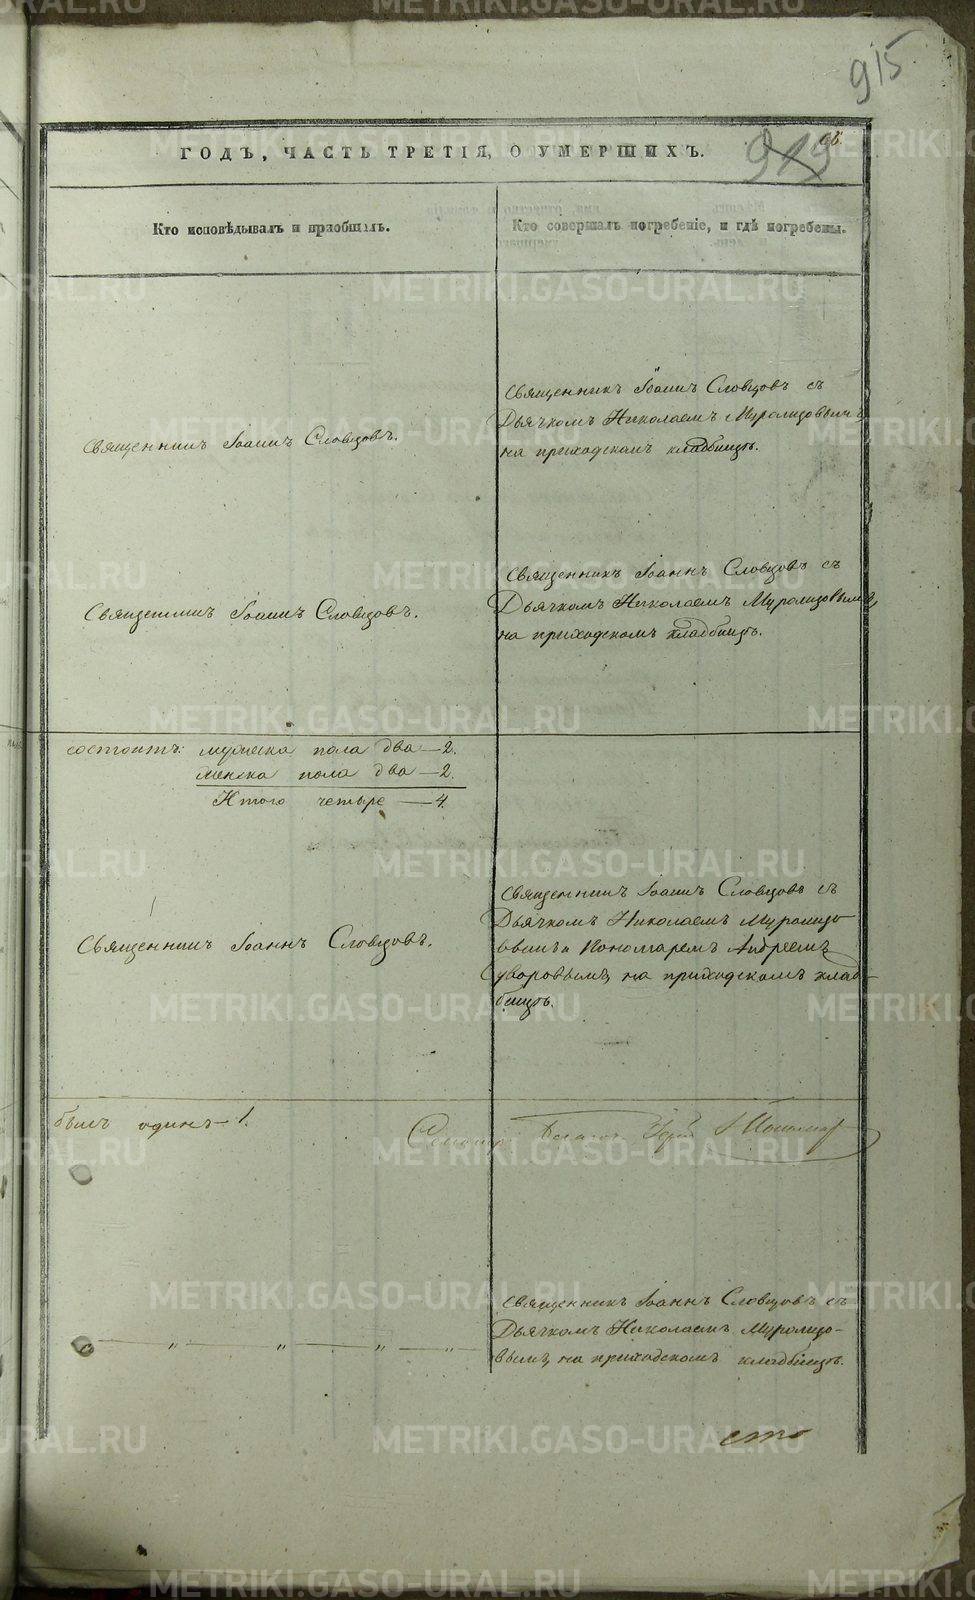 915
919
ГОДЪ, ЧАСТЬ ТРЕТІЯ, О УМЕРШИХЪ.
Кто исповѣдывалъ и пріобщалъ.
Кто совершалъ погребеніе, и гдѣ погребены.
Священникъ Іоаннъ Словцовъ.
Священникъ Іоаннъ Словцовъ съ
Дьячкомъ Николаемъ
на приходскомъ кладбищѣ.
Священникъ Іоаннъ Словцовъ.
Священникъ Іоаннъ Словцовъ съ
Дьячкомъ Николаемъ
на приходскомъ кладбищѣ.
состоитъ: мужеска пола два — 2.
женска пола два — 2.
Итого четыре — 4.
Священникъ Іоаннъ Словцовъ.
Священникъ Іоаннъ Словцовъ съ
Дьячкомъ Николаемъ
и Пономаремъ Андреемъ
Суворовымъ, на приходскомъ клад-
бищѣ.
былъ одинъ — 1.
Священникъ Іоаннъ Словцовъ съ
Дьячкомъ Николаемъ
вымъ, на приходскомъ кладбищѣ.
METRIKI.GASO-URAL.RU